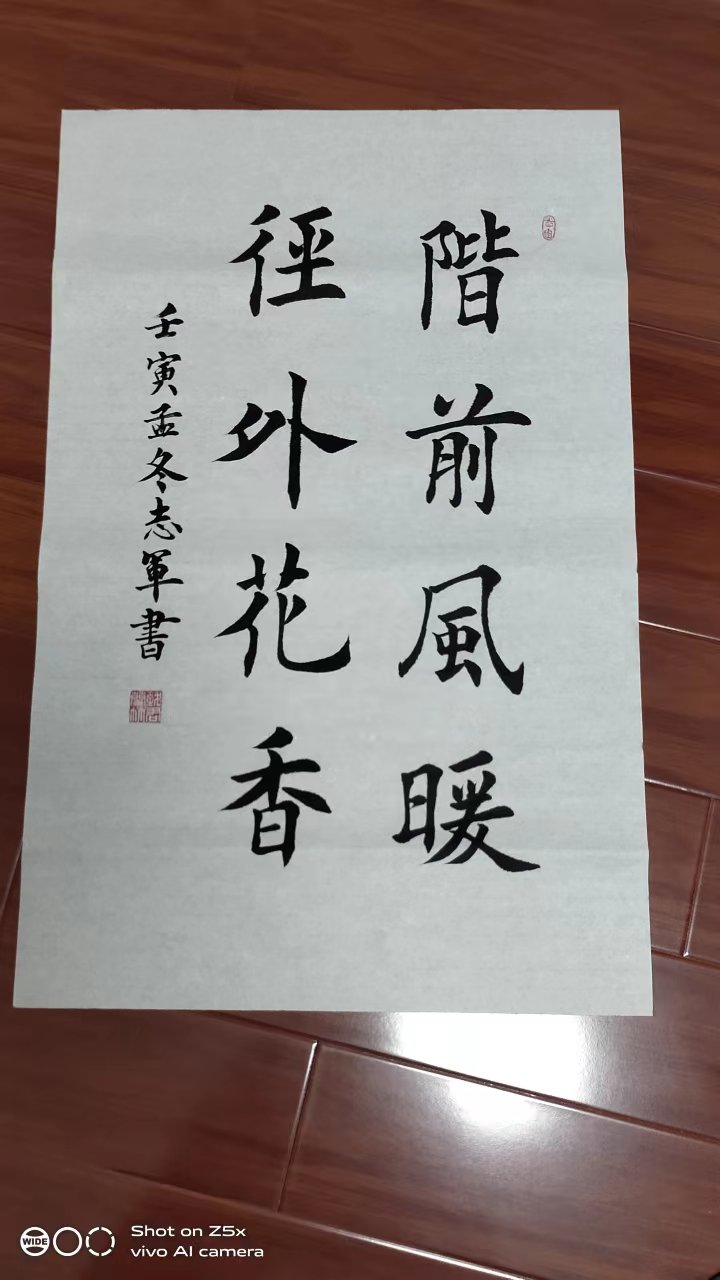 階前風暖
徑外花香
壬寅孟冬志軍書
WIDE
Shot on Z5x
vivo AI camera